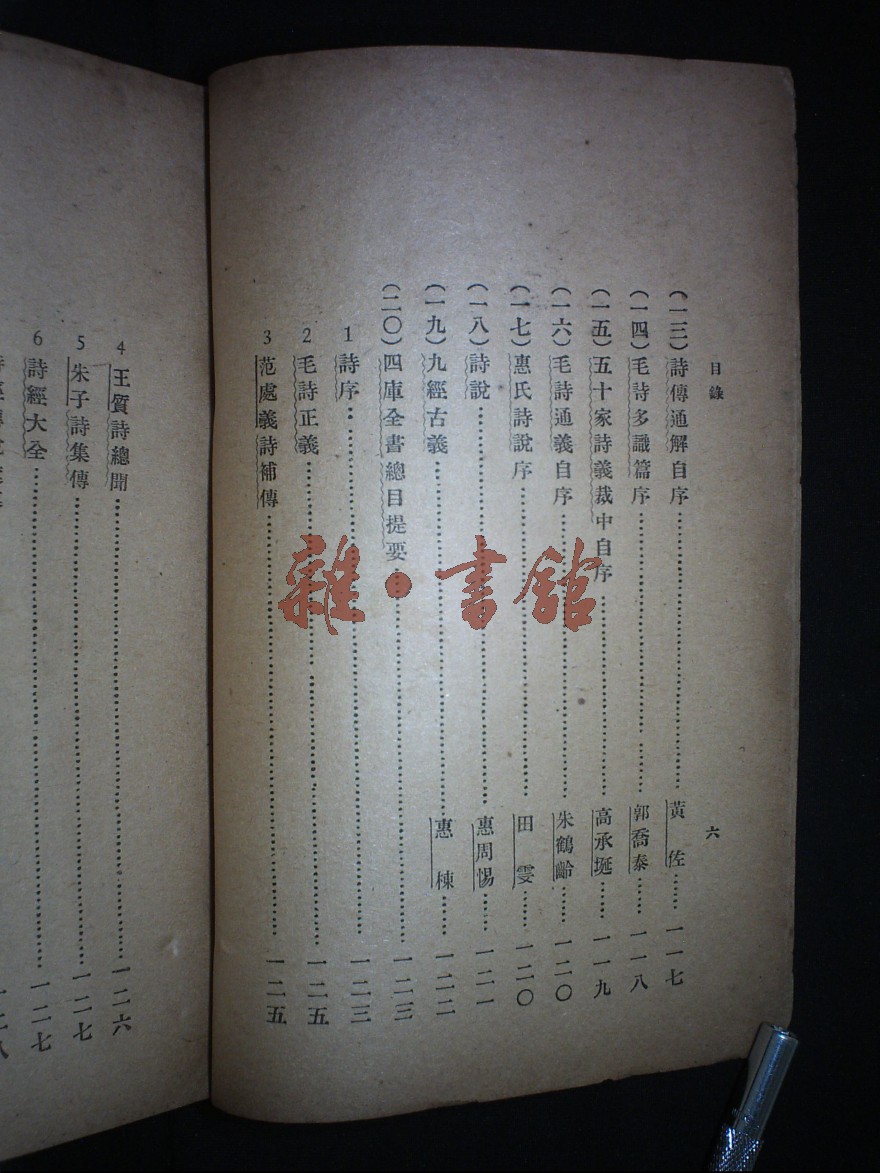 目錄
六
(一三)詩傳通解自序……黃佐……一一七
(一四)毛詩多識篇序……郭喬泰……一一八
(一五)五十家詩義裁中自序……高承埏……一一九
(一六)毛詩通義自序……朱鶴齡……一二〇
(一七)惠氏詩說序……田雯……一二〇
(一八)詩說……惠周惕……一二一
(一九)九經古義……惠棟……一二二
(二〇)四庫全書總目提要……一二三
1 詩序……一二三
2 毛詩正義……一二五
3 范處義詩補傳……一二五
4 王質詩總聞……一二六
5 朱子詩集傳……一二七
6 詩經大全……一二七
雜·書館